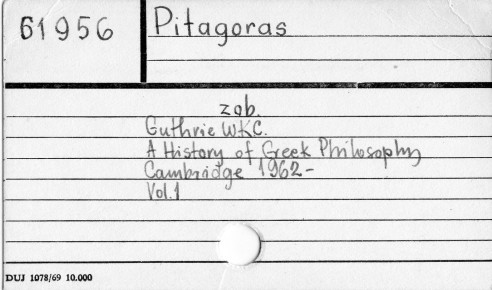 61956
Pitagoras
zob.
Guthrie W.K.C.
A History of Greek Philosophy
Cambridge 1962-
Vol. 1
DUJ 1078/69 10.000